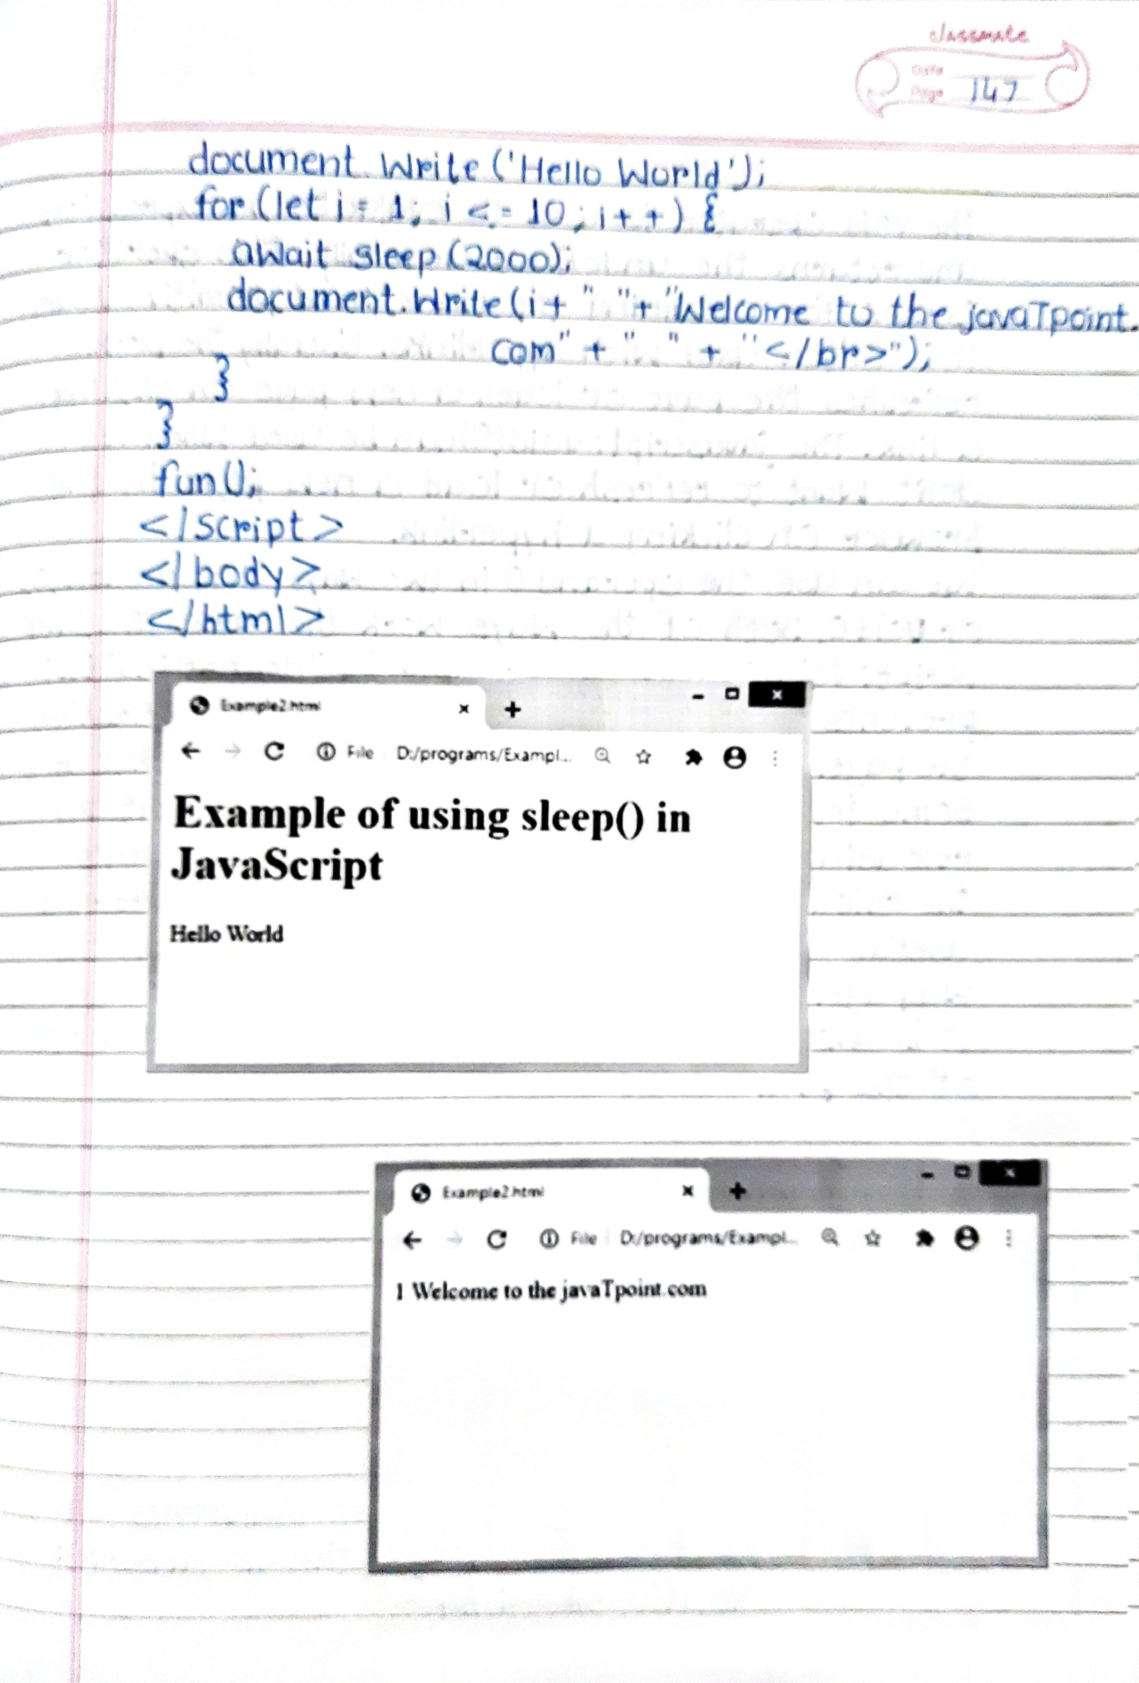 classmate
Date
Page 149
document.Write('Hello World');
for(let i = 1; i <= 10; i++) {
await sleep(2000);
document.Write(i+ " "+ "Welcome to the javaTpoint.
com" + " " + "</br>");
}
}
fun();
</script>
</body>
</html>
Example2.html
File D:/programs/Exampl...
Example of using sleep() in
JavaScript
Hello World
Example2.html
File D:/programs/Exampl...
1 Welcome to the javaTpoint.com